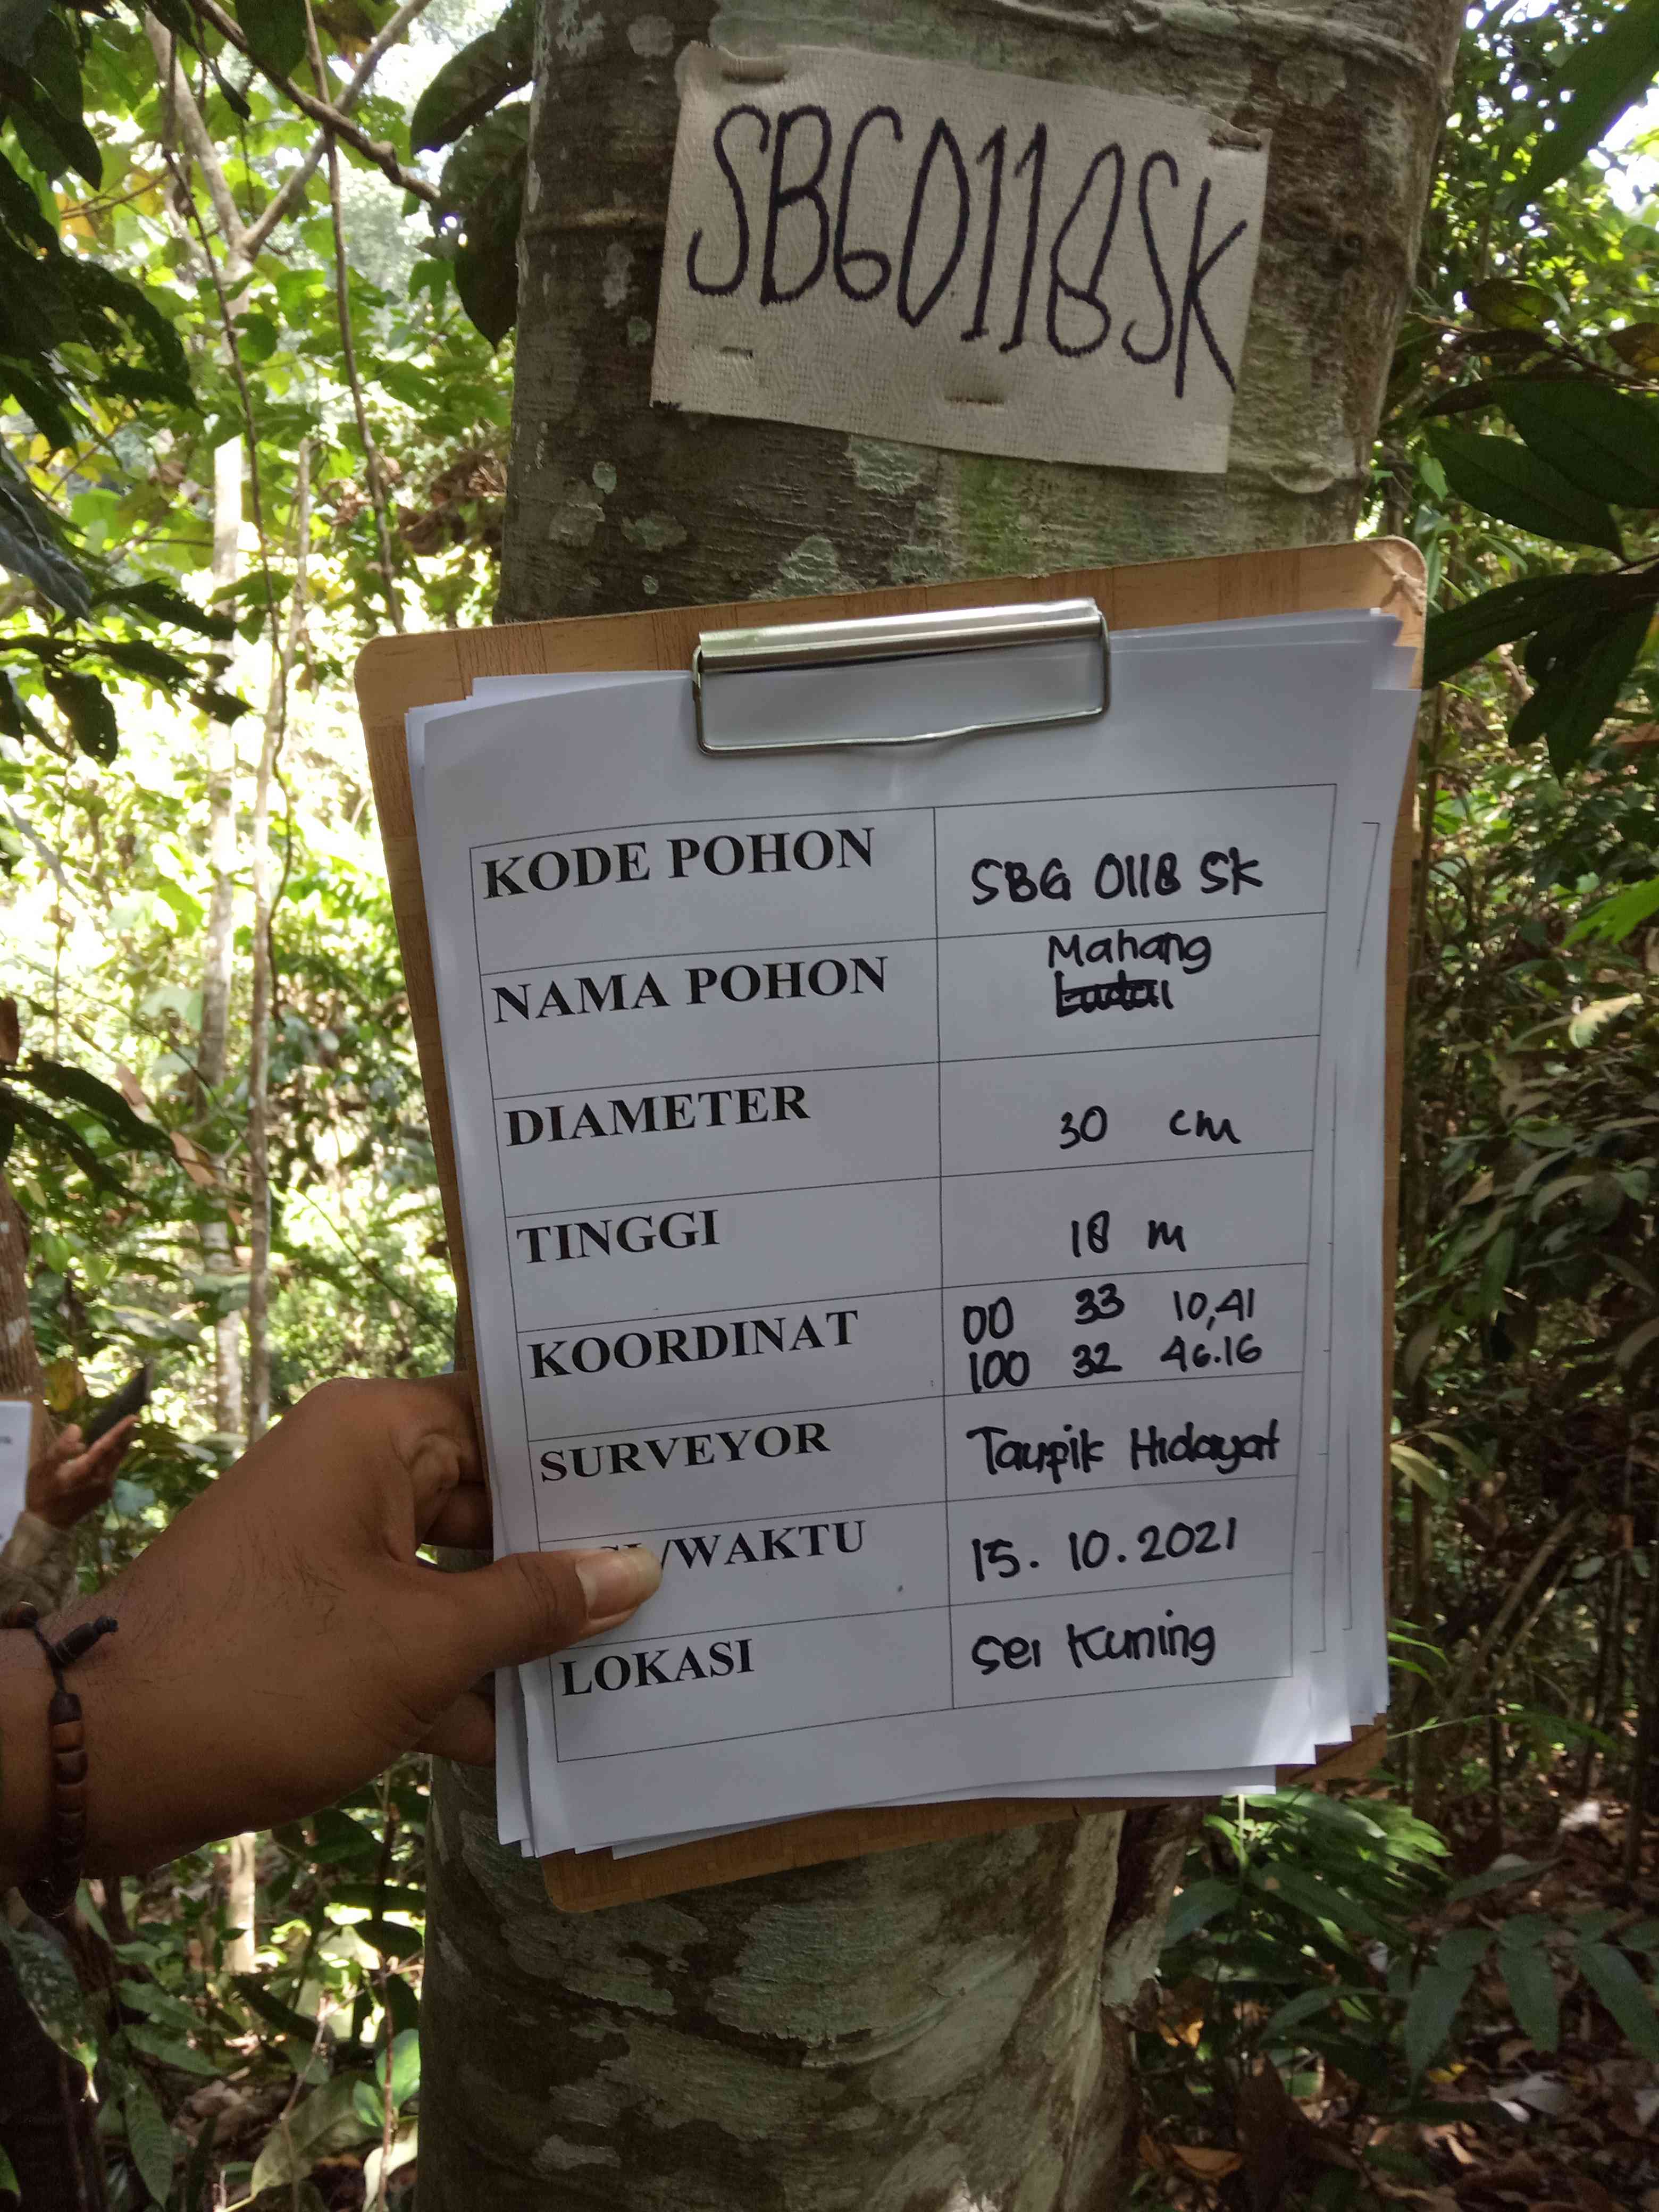 SBG0118SK
KODE POHON SBG 0118 SK
NAMA POHON Mahang
DIAMETER 30 cm
TINGGI 18 m
KOORDINAT 00 33 10,41
100 32 46.16
SURVEYOR Taupik Hidayat
/WAKTU 15.10.2021
LOKASI Sei Kuning